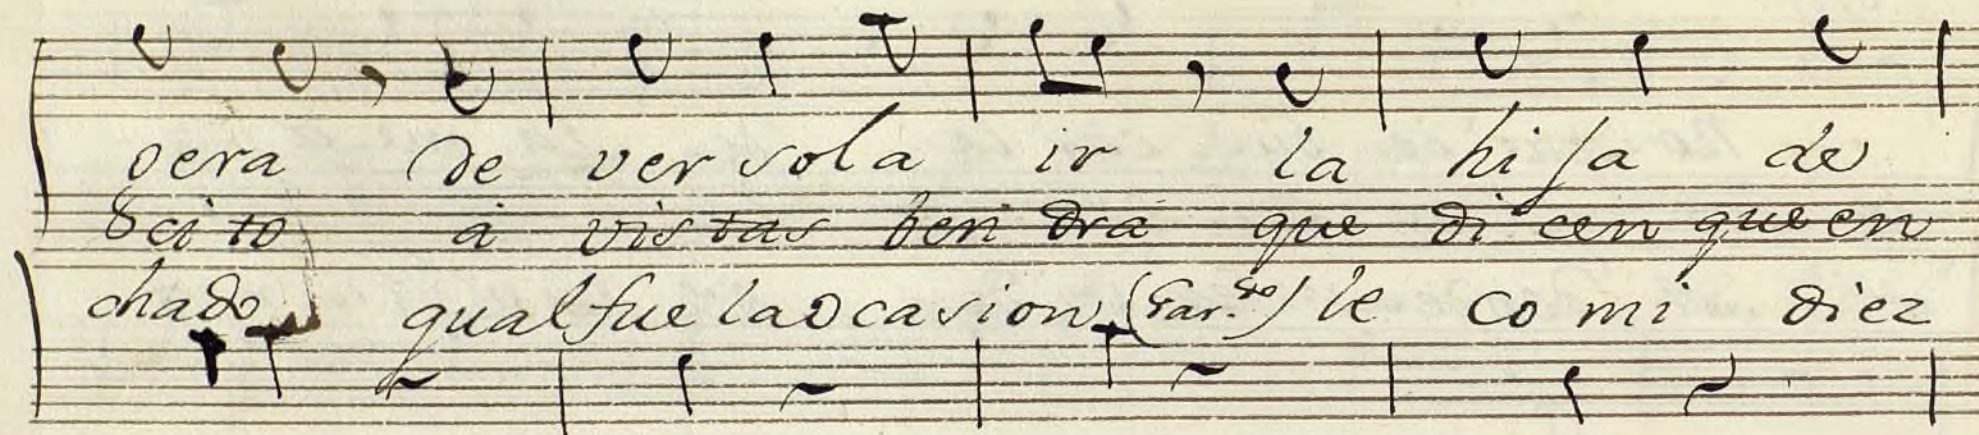 vera de ver sola ir la hija de
Scito á vistas ben dra que di cen que en
chado qual fue la ocasion (Gar.do) le co mi diez